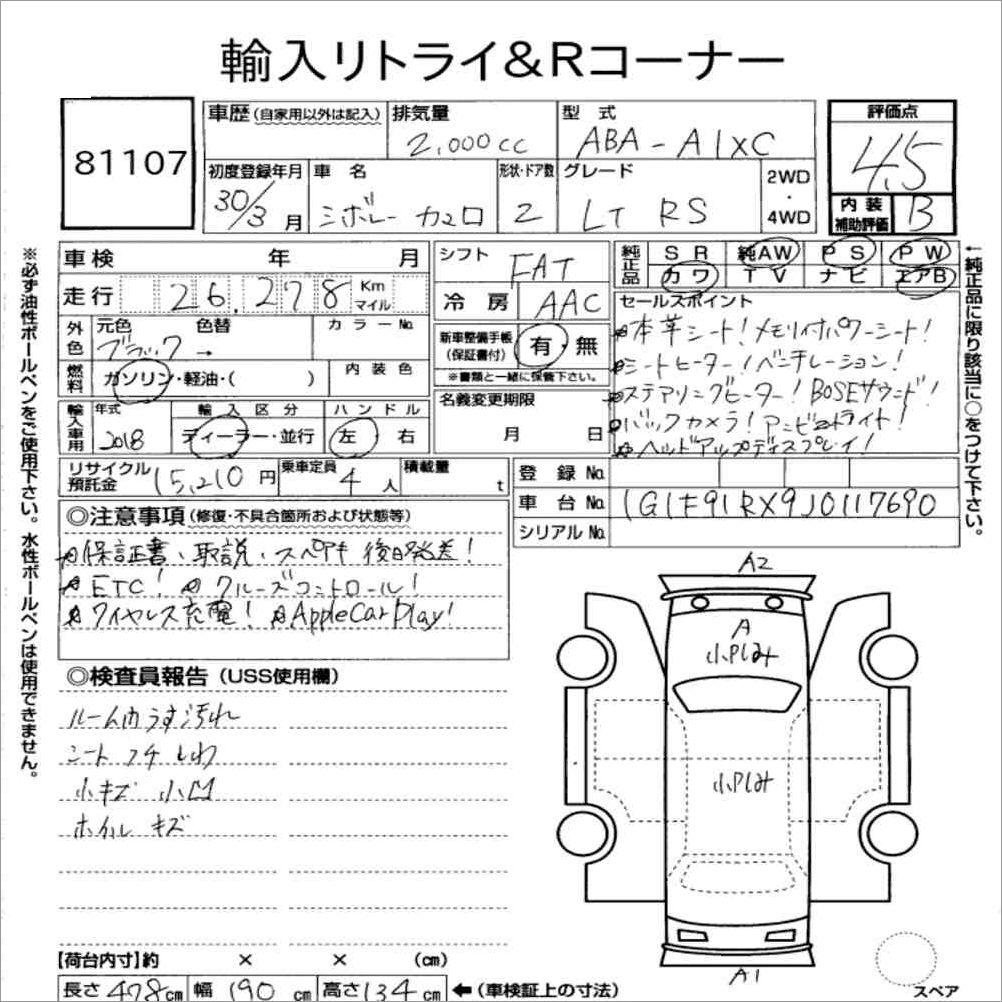 輸入リトライ&Rコーナー
81107
車歴 (自家用以外は記入)
排気量 2,000cc
型式 ABA-A1XC
評価点 4.5
初度登録年月 30/3月
車名 シボレー カマロ
形状・ドア数 2
グレード LT RS
2WD・4WD
内装補助評価 B
※必ず油性ボールペンをご使用下さい。水性ボールペンは使用できません。
車検 年 月
シフト FAT
純正品 SR 純AW PS PW
カワ TV ナビ エアB
←純正品に限り該当に○をつけて下さい。
走行 26,278 Km マイル
冷房 AAC
セールスポイント
外色 元色 ブラック 色替 → カラーNo.
新車整備手帳 (保証書付) 有・無
※書類と一緒に保管下さい。
☆本革シート!メモリ付パワーシート!
☆シートヒーター!ベンチレーション!
☆ステアリングヒーター!BOSEサウンド!
☆バックカメラ!アンビエントライト!
☆ヘッドアップディスプレイ!
燃料 ガソリン・軽油・( ) 内装色
名義変更期限 月 日
輸入車用 年式 2018 輸入区分 ディーラー・並行 ハンドル 左 右
リサイクル預託金 15,210円 乗車定員 4人 積載量 t
登録No.
車台No. 1G1F91RX9J0117690
シリアルNo.
◎注意事項 (修復・不具合箇所および状態等)
☆保証書、取説、スペアキー後日発送!
☆ETC! ☆クルーズコントロール!
☆ワイヤレス充電! ☆AppleCarPlay!
◎検査員報告 (USS使用欄)
ルーム内うす汚れ
シート フチ しわ
小キズ 小凹
ホイル キズ
A2
A
小PLみ
小PLみ
A1
スペア
【荷台内寸】約 × × (cm)
長さ 478cm 幅 190cm 高さ 134cm ←(車検証上の寸法)